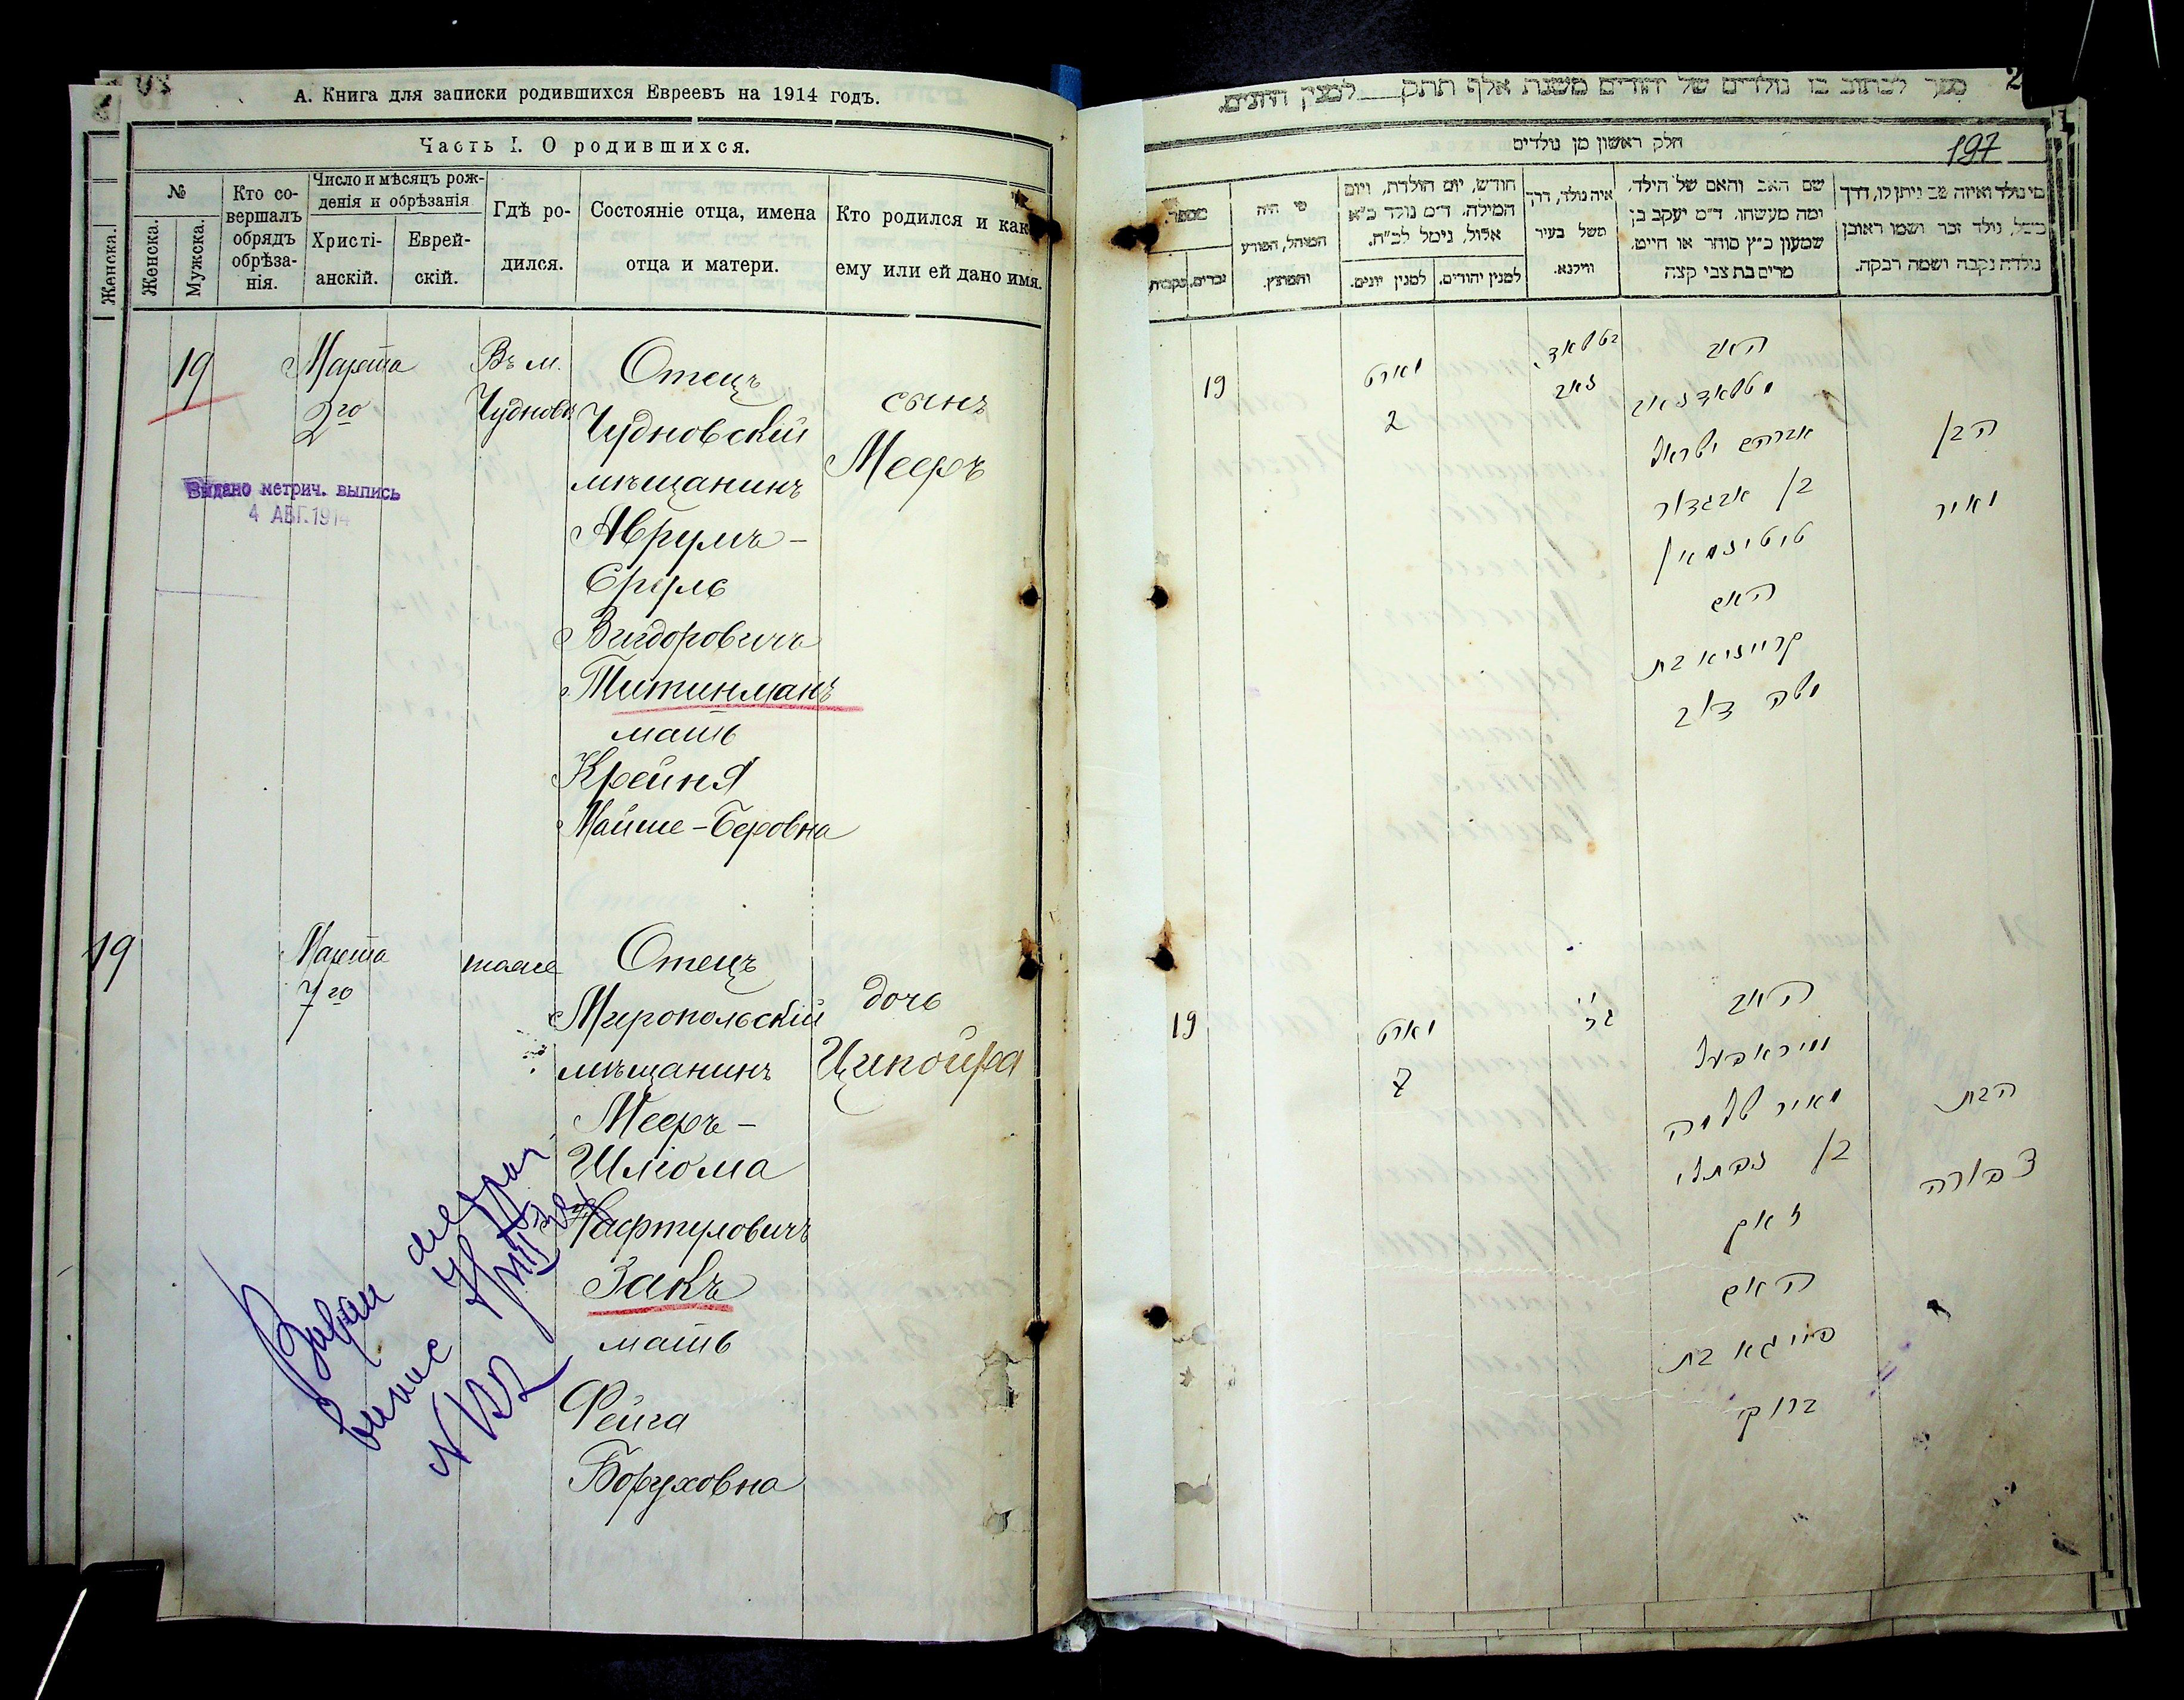 А. Книга для записки родившихся Евреевъ на 1914 годъ.
Часть I. О родившихся.
№
Женска.
Мужска.
Кто со-
вершалъ
обрядъ
обрѣза-
нія.
Число и мѣсяцъ рож-
денія и обрѣзанія
Христі-
анскій.
Еврей-
скій.
Гдѣ ро-
дился.
Состояніе отца, имена
отца и матери.
Кто родился и как
ему или ей дано имя.
Женска.
19
Марта
2го
Въ м.
Чудновѣ
Отецъ
Чудновскій
мѣщанинъ
Аврумъ-
Сруль
Вигдоровичъ
Титинманъ
мать
Крейня
Майше-Беровна
сынъ
Мееръ
Выдано метрич. выпись
4 АВГ.1914
19
Марта
7го
тоже
Отецъ
Миропольскій
мѣщанинъ
Мееръ-
Шліома
Нафтуловичъ
Закъ
мать
Фейга
Боруховна
дочь
Ципойра
ספר לכתוב בו נולדים של יהודים משנת אלף תתק למנין היונים.
197
חלק ראשון מן נולדים
מספר.
זכרים.
נקבות
מי היה
המוהל, הפורע
והמוצץ.
חודש, יום הולדת, ויום
המילה. ד״מ נולד כ״א
אלול, נימל לכ״ח.
למנין יונים.
למנין יהודים.
איה נולד, דרך
משל בעיר
ווילנא.
שם האב והאם של הילד.
ומה מעשהו. ד״מ יעקב בן
שמעון כ״ץ סוחר או חייט.
מרים בת צבי קצה
מי נולד ואיזה שם ניתן לו, דרך
משל, נולד זכר ושמו ראובן
נולדה נקבה ושמה רבקה.
19
מארט
2
האב
אברהם ישראל
בן אביגדור
טיטינמאן
האם
קריינא בת
משה דוב
הבן
מאיר
19
מארט
7
האב
מיראפעל
מאיר שלמה
בן נפתלי
זאק
האם
פייגא בת
ברוך
הבת
צפורה